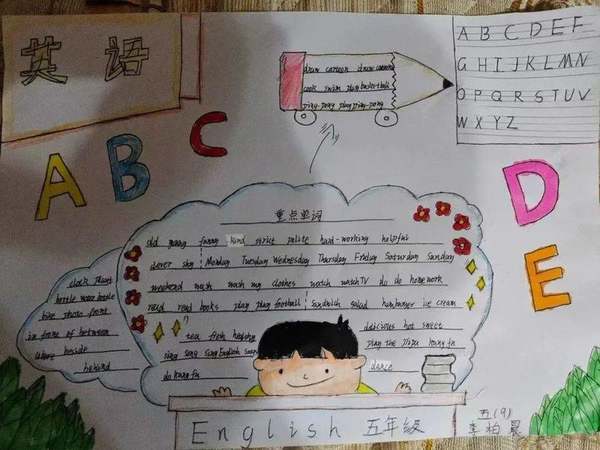 英语
draw cartoon draw cartoons
cook swim play basketball
ping-pong play ping-pong
A B C D E F
G H I J K L M N
O P Q R S T U V
W X Y Z
A B C
D
E
重点单词
old young funny kind strict polite hard-working helpful
clever shy Monday Tuesday Wednesday Thursday Friday Saturday Sunday
weekend wash wash my clothes watch watch TV do do homework
read read books play play football Sandwich salad hamburger ice cream
tea fresh healthy delicious hot sweet
sing song sing English songs play the pipa kung fu
do kung fu dance
clock plant
bottle water bottle
bike photo front
in front of between
above beside
behind
English 五年级
五(9)
李柏晨